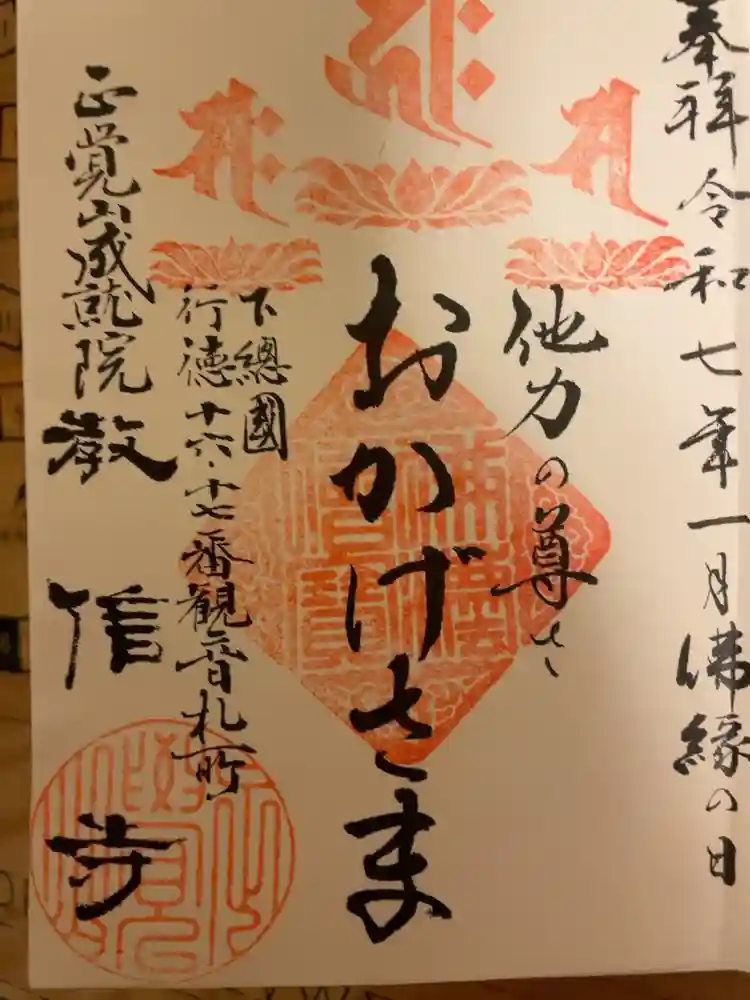 奉拝令和七年一月佛縁の日
他力の尊さ
おかげさま
下總國
行徳十六・十七番観音札所
正覚山成就院教信寺